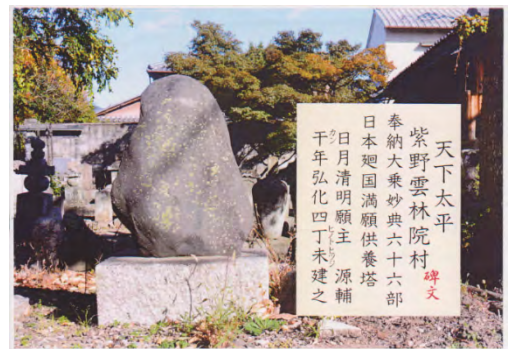 天下太平
紫野雲林院村
碑文
奉納大乗妙典六十六部
日本廻国満願供養塔
日月清明願主 源輔
干年弘化四丁未建之
カン
ヒノトヒツジ